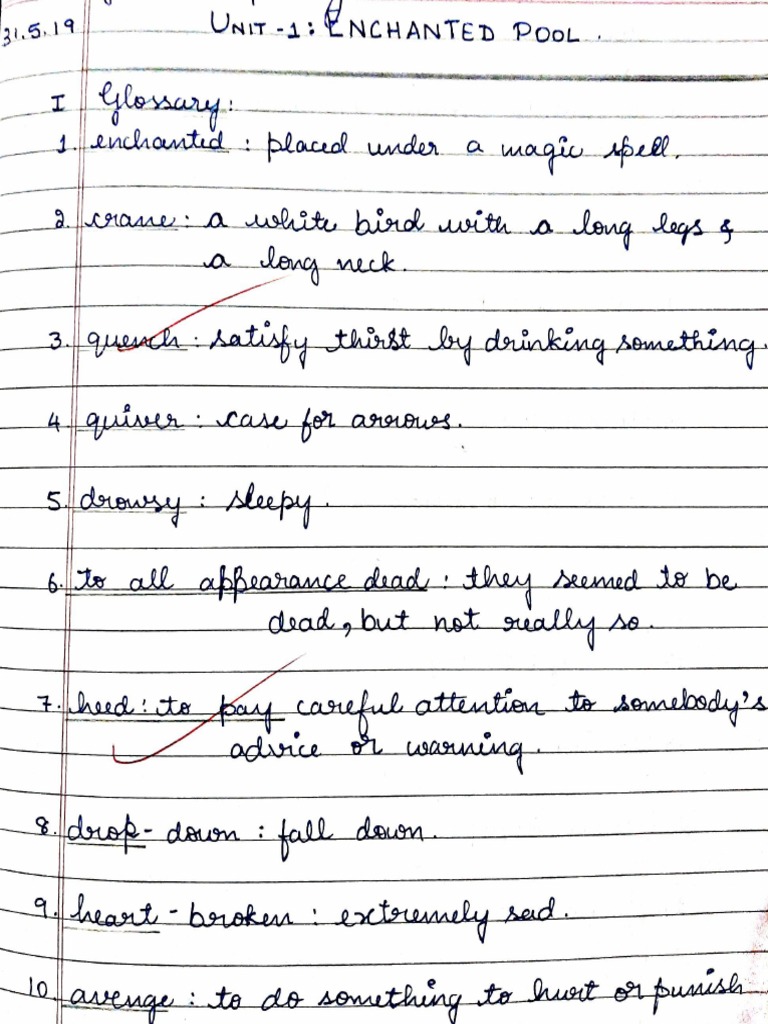 31.5.19 UNIT-1: ENCHANTED POOL.
I Glossary:
1. enchanted : placed under a magic spell.
2. crane : a white bird with a long legs &
a long neck.
3. quench : satisfy thirst by drinking something.
4. quiver : case for arrows.
5. drowsy : sleepy.
6. to all appearance dead : they seemed to be
dead, but not really so.
7. heed : to pay careful attention to somebody's
advice or warning.
8. drop-down : fall down.
9. heart-broken : extremely sad.
10. avenge : to do something to hurt or punish